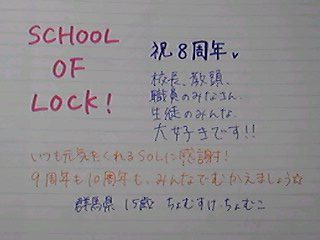 SCHOOL
OF
LOCK!
祝8周年、
校長、教頭、
職員のみなさん
生徒のみんな
大好きです!!
いつも元気をくれるSOLに感謝!
9周年も10周年も、みんなでむかえましょう☆
群馬県 15歳 ちょむすけちょむこ